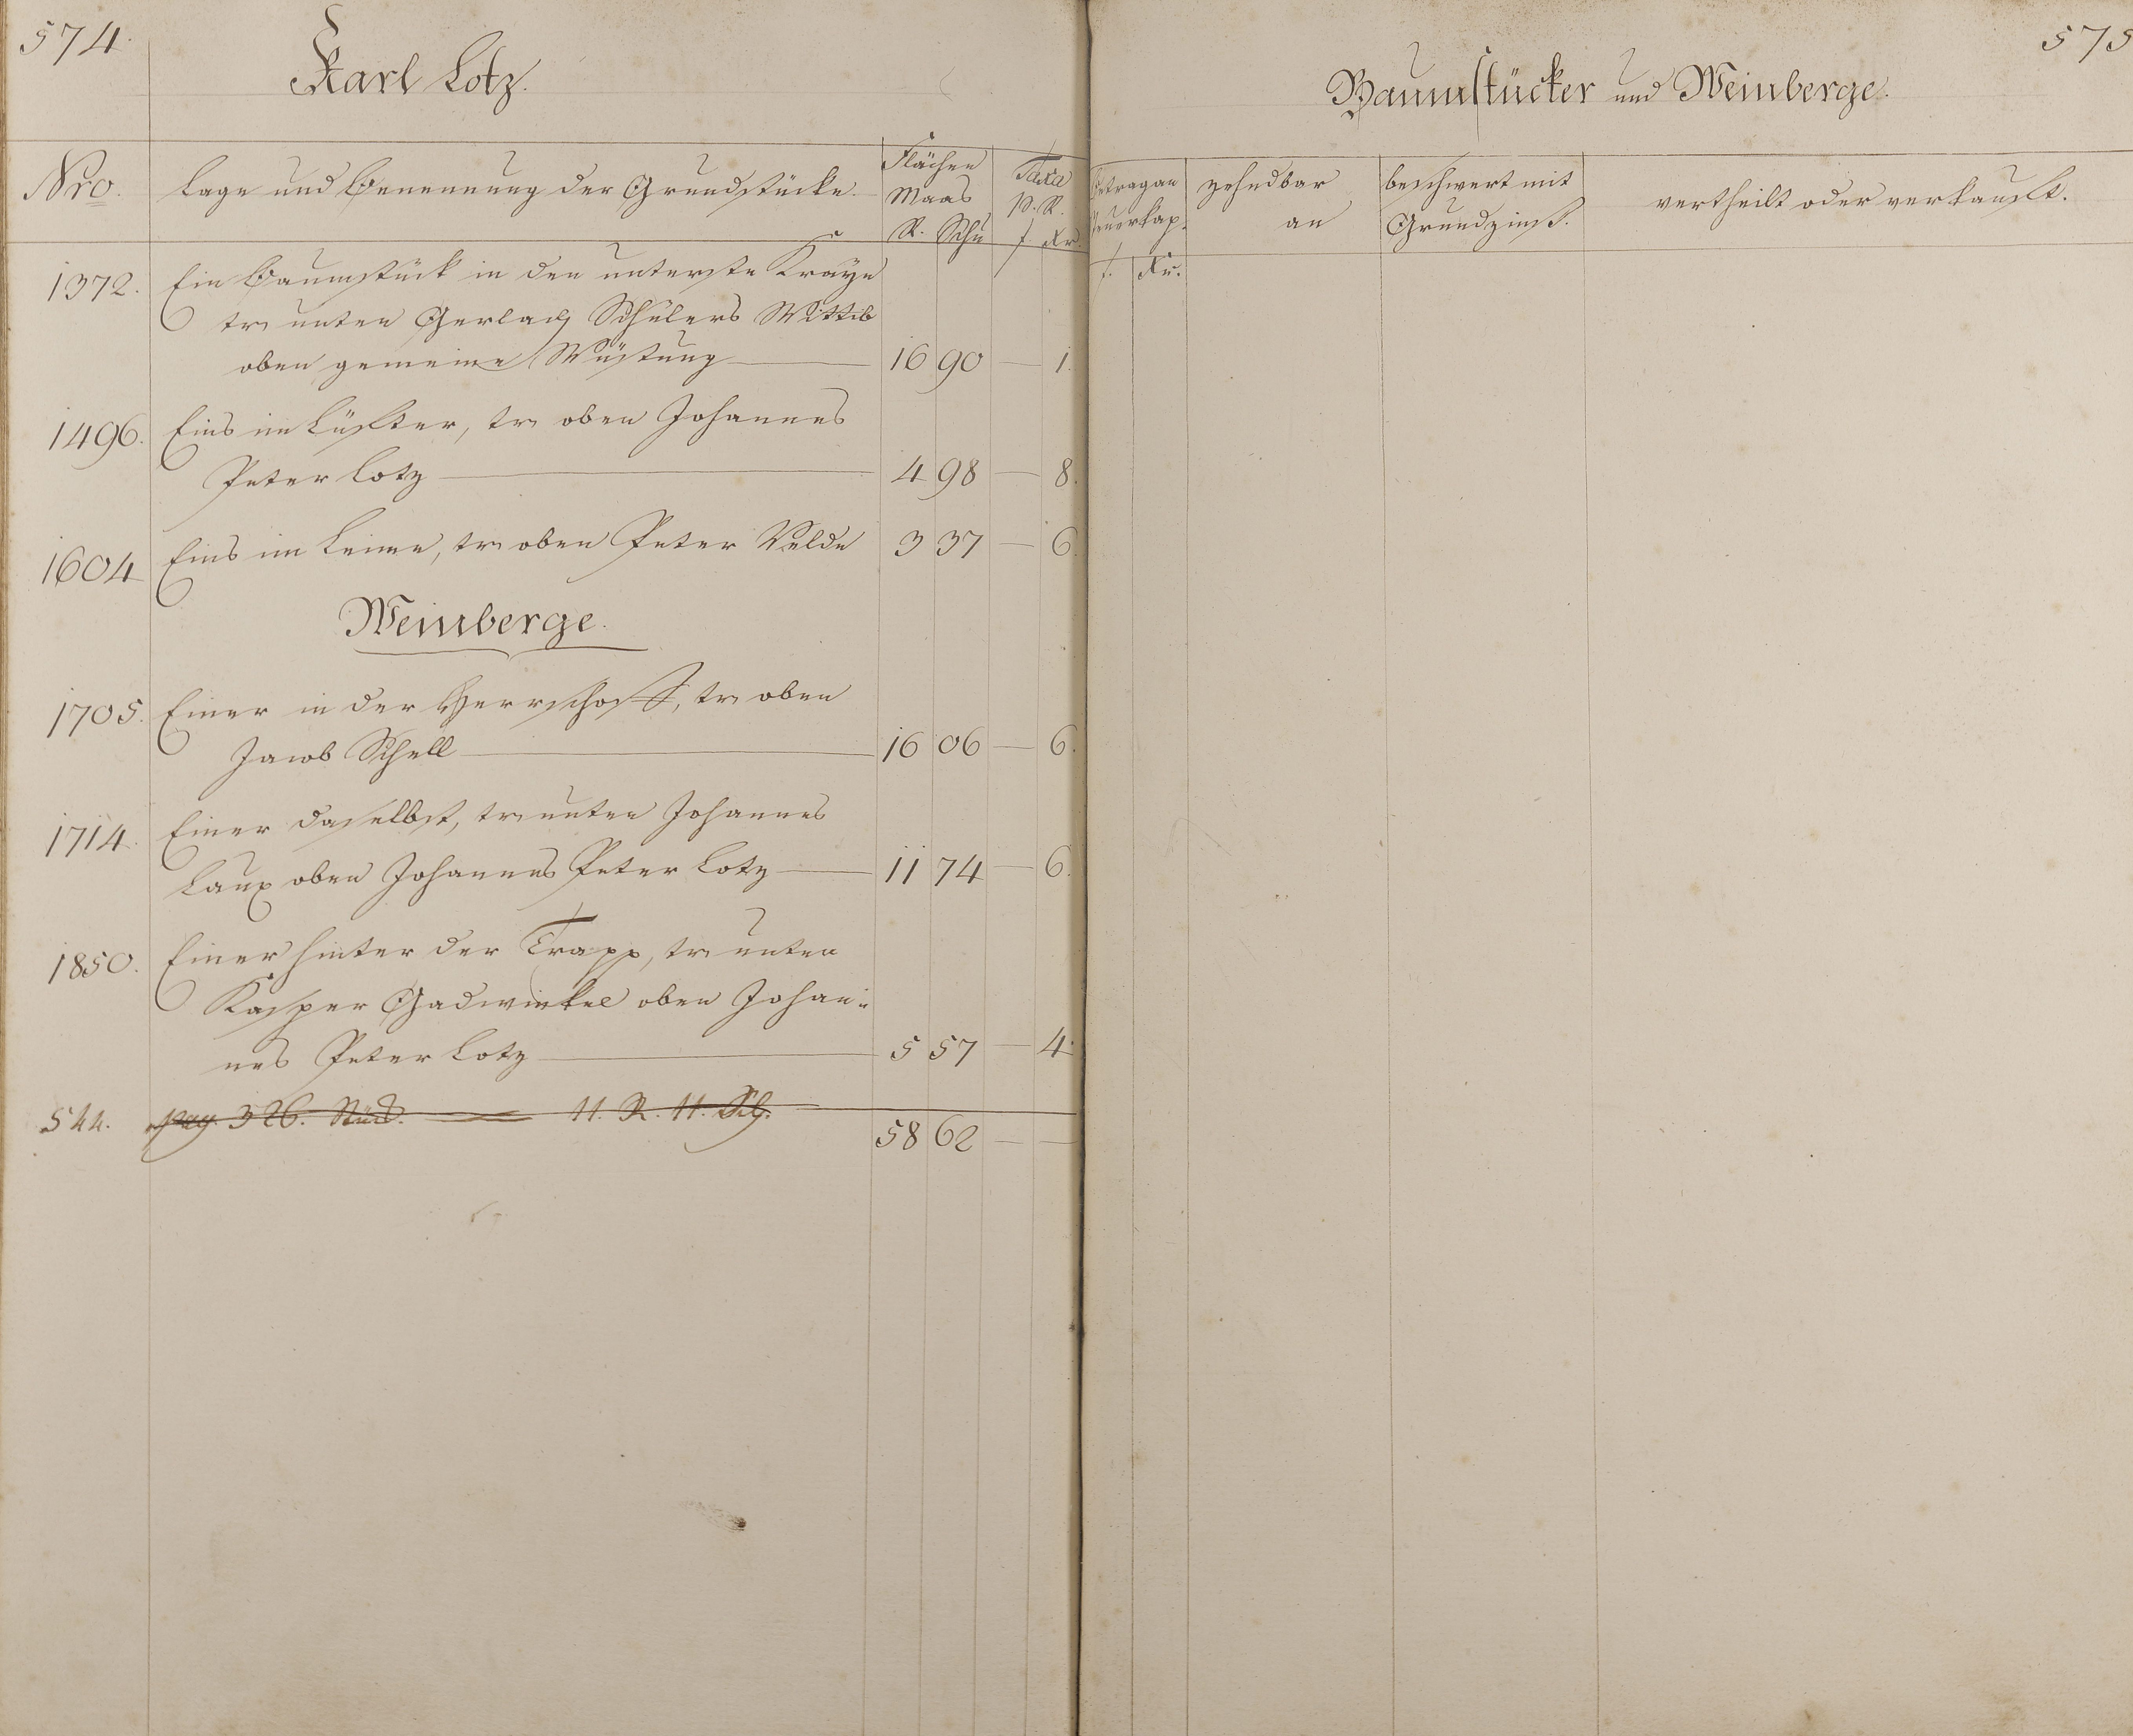 574.
Karl Lotz.
Nro.
Lage und Benennung der Grundstücke.
Flächen
Maas
R. Schu
Taxa
p. R.
f Xr.
1372.
Ein Baumstück in den unterste Kräye
tr unten Gerlach Schülers Wittib
oben gemeine Wüstung
16 90 — 1.
1496.
Eins im Lüfter, tr oben Johannes
Peter Lotz
4 98 — 8.
1604
Eins im Leime, tr oben Peter Velde
3 37 — 6.
Weinberge.
1705.
Einer in der Herrschaft, tr oben
Jacob Schell
16 06 — 6.
1714.
Einer daselbst, tr unten Johannes
Laux oben Johannes Peter Lotz
11 74 — 6.
1850.
Einer hinter der Trapp, tr unten
Kasper Gadwinkel oben Johan-
nes Peter Lotz
5 57 — 4.
544.
pag. 326. 11. R. 11. Sch.
58 62 — —
575
Baumstücker und Weinberge.
Betrag an
Steuerkap.
f. Xr.
zehndbar
an
beschwert mit
Grundzinß.
vertheilt oder verkauft.